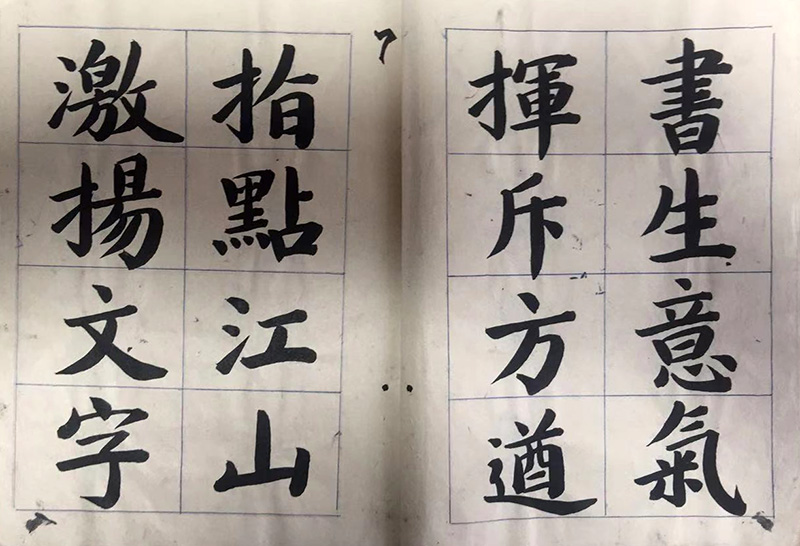 書生意氣
揮斥方遒
指點江山
激揚文字